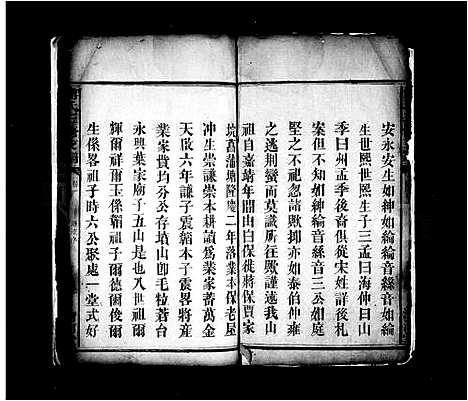 安永安生如紳如綸綸音絲音如綸
生世熙世熙生子三孟曰海仲曰山
季曰州孟季後裔俱從宋姓詳後札
案但不知如紳綸音絲音三公如庭
堅之不祀忽諸歟抑亦如泰伯仲雍
之逃荆蠻而莫識所往歟謹述我山
祖自嘉靖年間由白保徙蔣保賈家
坑菖蒲塘隆慶二年落業本保老屋
冲生崇謙崇本耕讀爲業家蓄萬金
天啟六年謙子震韜本子震畧將産
業家貲均分公存墳山卽毛粒蒼台
永興葉家廟子五山是也八世祖爾
輝爾祥爾玉係韜祖子爾德爾俊爾
生係畧祖子時六公聚處一堂式好